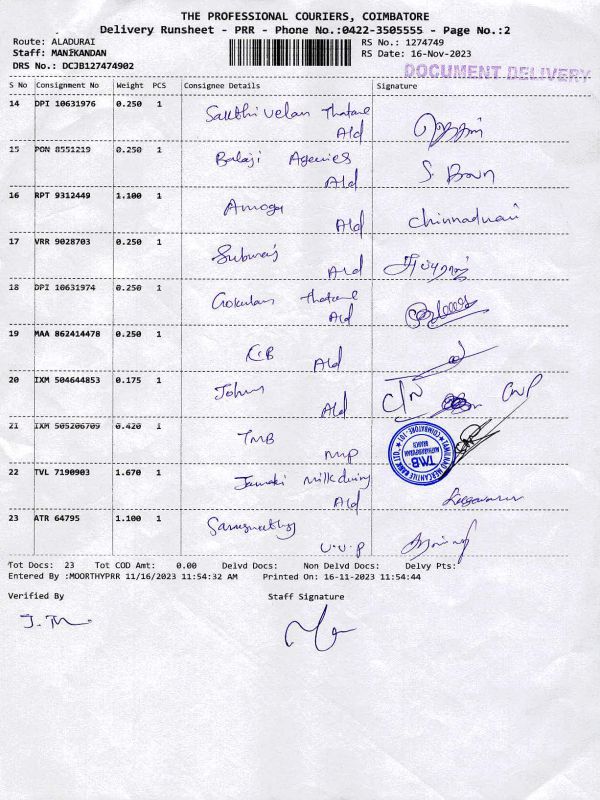 THE PROFESSIONAL COURIERS, COIMBATORE
Delivery Runsheet - PRR - Phone No.:0422-3505555 - Page No.:2
Route: ALADURAI
RS No.: 1274749
Staff: MANIKANDAN
RS Date: 16-Nov-2023
DRS No.: DCJB127474902
DOCUMENT DELIVERY
S No Consignment No Weight PCS Consignee Details Signature
14 DPI 10631976 0.250 1 Sakthivelan Thatane
Ald
15 PON 8551219 0.250 1 Balaji Agencies
Ald S. Bown
16 RPT 9312449 1.100 1 Amoga
Ald Chinnadurai
17 VRR 9028703 0.250 1 Suburaj
Ald
18 DPI 10631974 0.250 1 Gokulam Thatane
Ald
19 MAA 862414478 0.250 1 KCB
Ald
20 IXM 504644853 0.175 1 Johny
Ald C/N
21 IXM 505206709 0.420 1 TMB
MP
TAMILNAD MERCANTILE BANK LTD
TMB
COIMBATORE
22 TVL 7190903 1.670 1 Janaki Milk dairy
Ald
23 ATR 64795 1.100 1
U.U.P
Tot Docs: 23 Tot COD Amt: 0.00 Delvd Docs: Non Delvd Docs: Delvy Pts:
Entered By :MOORTHYPRR 11/16/2023 11:54:32 AM Printed On: 16-11-2023 11:54:44
Verified By Staff Signature